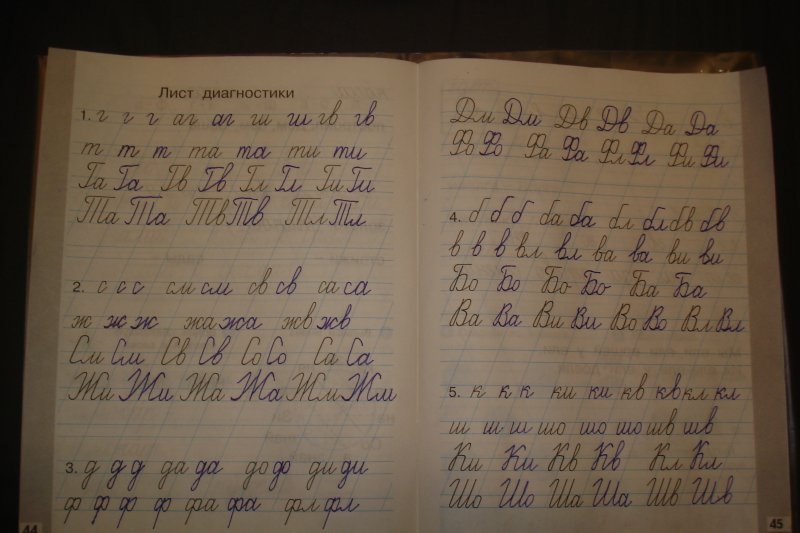 Лист диагностики
1. г г г аг аг ги ги гв гв
т т т та та ти ти
Га Га Гв Гв Гл Гл Ги Ги
Та Та Тв Тв Тл Тл
2. с с с см см св св са са
ж ж ж жа жа жв жв
См См Св Св Со Со Са Са
Жи Жи Жа Жа Жм Жм
3. д д д да да до до ди ди
ф ф ф ф фа фа фл фл
44
Дм Дм Дв Дв Да Да
Фо Фо Фа Фа Фл Фл Фи Фи
4. б б б ба ба бл бл бв бв
в в в вл вл ва ва ви ви
Бо Бо Бо Бо Ба Ба
Ва Ва Ви Ви Во Во Вл Вл
5. к к к ки ки кв кв кл кл
ш ш ш шо шо шо шв шв
Ки Ки Кв Кв Кл Кл
Шо Шо Ша Ша Шв Шв
45